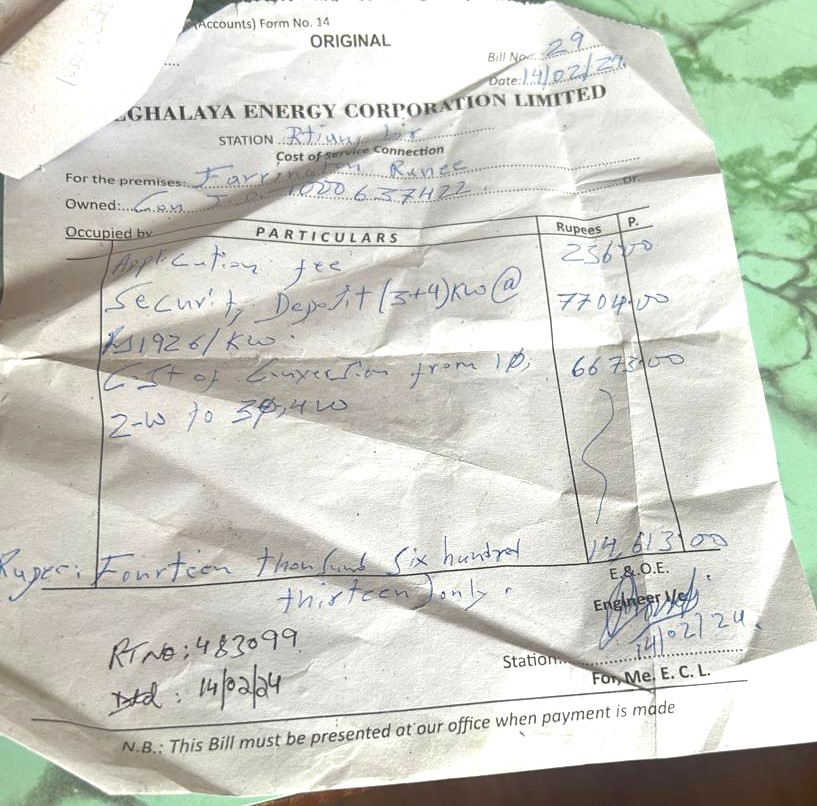 (Accounts) Form No. 14
ORIGINAL
Bill No. 29
Date: 14/02/24
GHALAYA ENERGY CORPORATION LIMITED
STATION
Cost of Service Connection
For the premises: Farrington Ranee
Owned: Con 1000637422 Dr.
Occupied by PARTICULARS Rupees P.
Application fee 236.00
Security Deposit (3+4) KW @ 7704.00
Rs 1926/KW.
Cost of Conversion from 1Ø, 6673.00
2-W to 3Ø, 4W
14,613.00
Rupees: Fourteen thousand six hundred
thirteen) only.
E.&.O.E.
Engineer I/c
14/02/24.
RT NO: 483099
Dtd : 14/02/24
Station
For, Me. E. C. L.
N.B.: This Bill must be presented at our office when payment is made